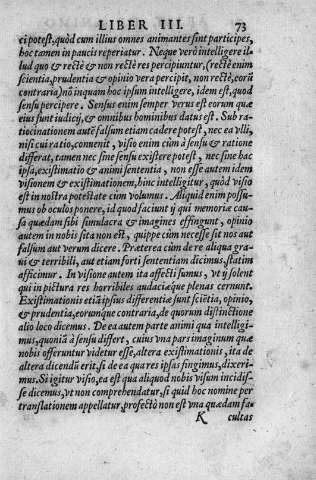 LIBER III. 73
ci potest, quòd cum illius omnes animantes sint participes,
hoc tamen in paucis reperiatur. Neque verò intelligere il-
lud quo & rectè & non rectè res percipiuntur, (rectè enim
scientia, prudentia & opinio vera percipit, non rectè, eorũ
contraria) nõ inquam hoc ipsum intelligere, idem est, quod
sensu percipere. Sensus enim semper verus est eorum quæ
eius sunt iudicij, & omnibus hominibus datus est. Sub ra-
tiocinationem autẽ falsum etiam cadere potest, nec ea vlli,
nisi cui ratio, conuenit, visio enim cùm à sensu & ratione
differat, tamen nec sine sensu existere potest, nec sine hac
ipsa, existimatio & animi sententia, non esse autem idem
visionem & existimationem, hinc intelligitur, quòd visio
est in nostra potestate cum volumus. Aliquid enim possu-
mus ob oculos ponere, id quod faciunt ij qui memoriæ cau-
sa quædam sibi simulacra & imagines effingunt, opinio
autem in nobis sita non est, quippe cùm necesse sit nos aut
falsum aut verum dicere. Præterea cùm de re aliqua gra-
ui & terribili, aut etiam forti sententiam dicimus, statim
afficimur. In visione autem ita affecti sumus, vt ij solent
qui in pictura res horribiles audaciæque plenas cernunt.
Existimationis etiã ipsius differentiæ sunt sciẽtia, opinio,
& prudentia, eorumque contraria, de quorum distinctione
alio loco dicemus. De ea autem parte animi qua intelligi-
mus, quoniã à sensu differt, cuius vna pars imaginum quæ
nobis offeruntur videtur esse, altera existimationis, ita de
altera dicendũ erit, si de ea qua res ipsas fingimus, dixeri-
mus. Si igitur visio, ea est qua aliquod nobis visum incidis-
se dicemus, vt non comprehendatur, si quid hoc nomine per
translationem appellatur, profectò non est vna quædam fa-
K cultas